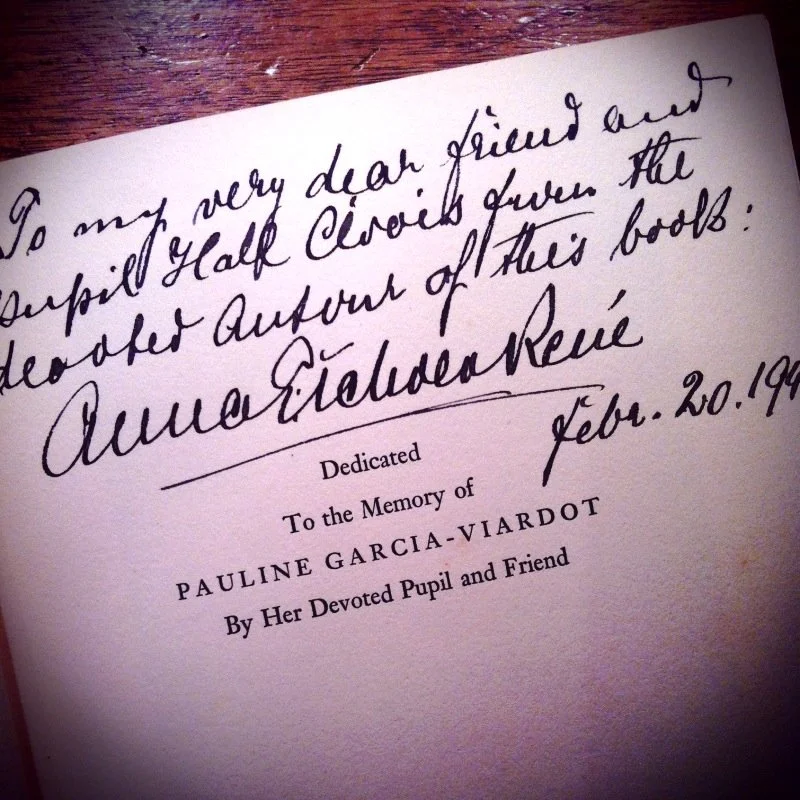 To my very dear friend and
pupil Clovis from the
devoted Autour of this book:
Anna E. Schoen René
Febr. 20. 194
Dedicated
To the Memory of
PAULINE GARCIA-VIARDOT
By Her Devoted Pupil and Friend